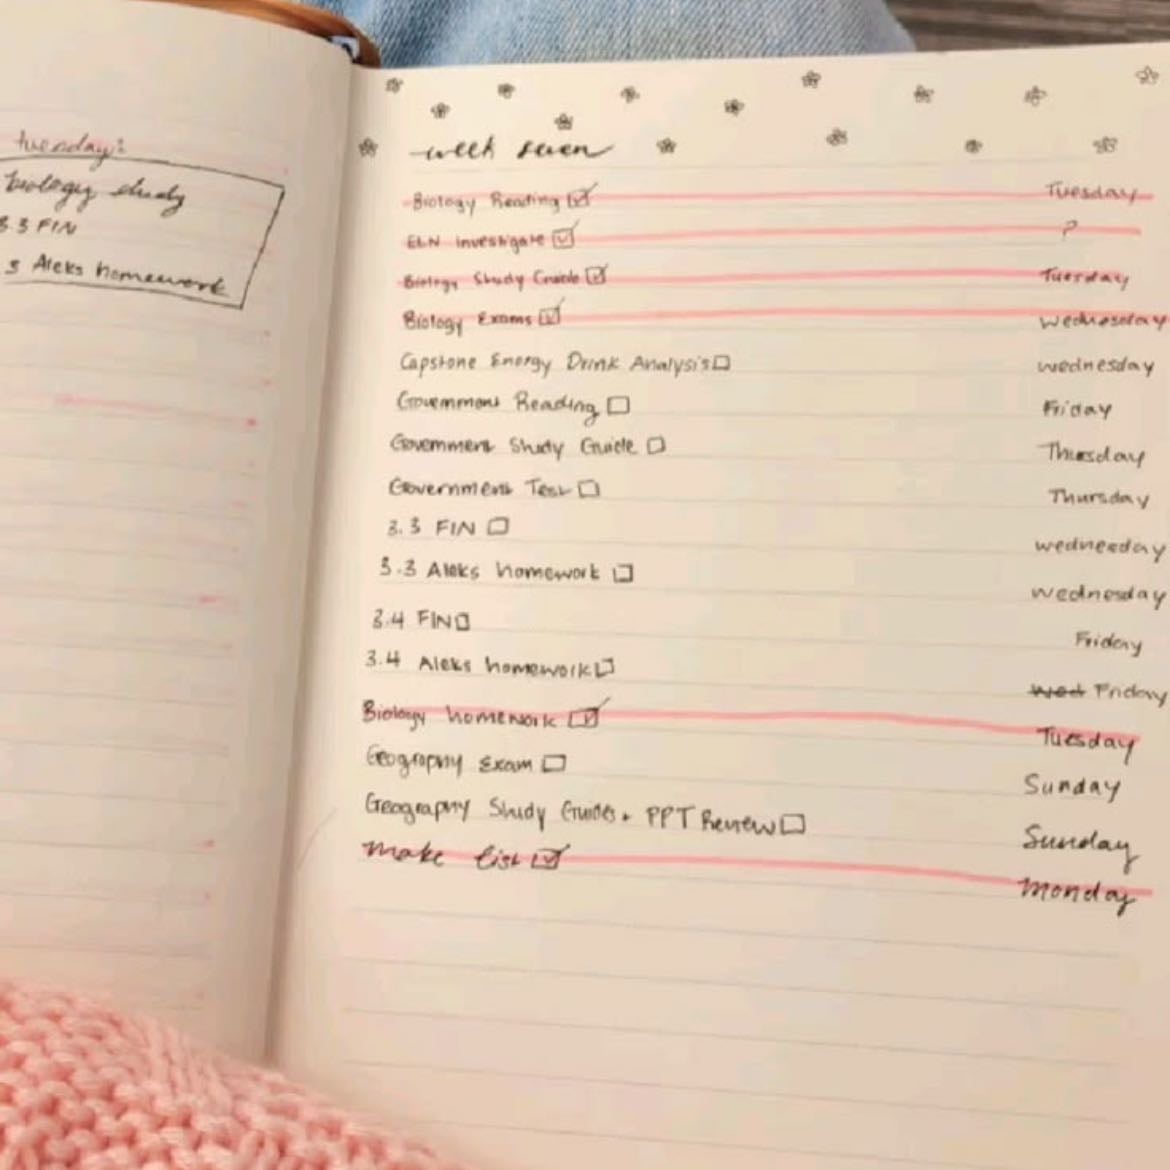 tuesday:
biology study
3.3 FIN
3 Aleks homework
week seven
Biology Reading ☑ Tuesday
ELN investigate ☑ ?
Biology Study Guide ☑ Tuesday
Biology Exams ☑ Wednesday
Capstone Energy Drink Analysis ☐ wednesday
Government Reading ☐ Friday
Government Study Guide ☐ Thursday
Government Test ☐ Thursday
3.3 FIN ☐ wednesday
3.3 Aleks homework ☐ wednesday
3.4 FIN ☐ Friday
3.4 Aleks homework ☐ wed Friday
Biology homework ☑ Tuesday
Geography Exam ☐ Sunday
Geography Study Guides + PPT Review ☐ Sunday
make list ☑ monday